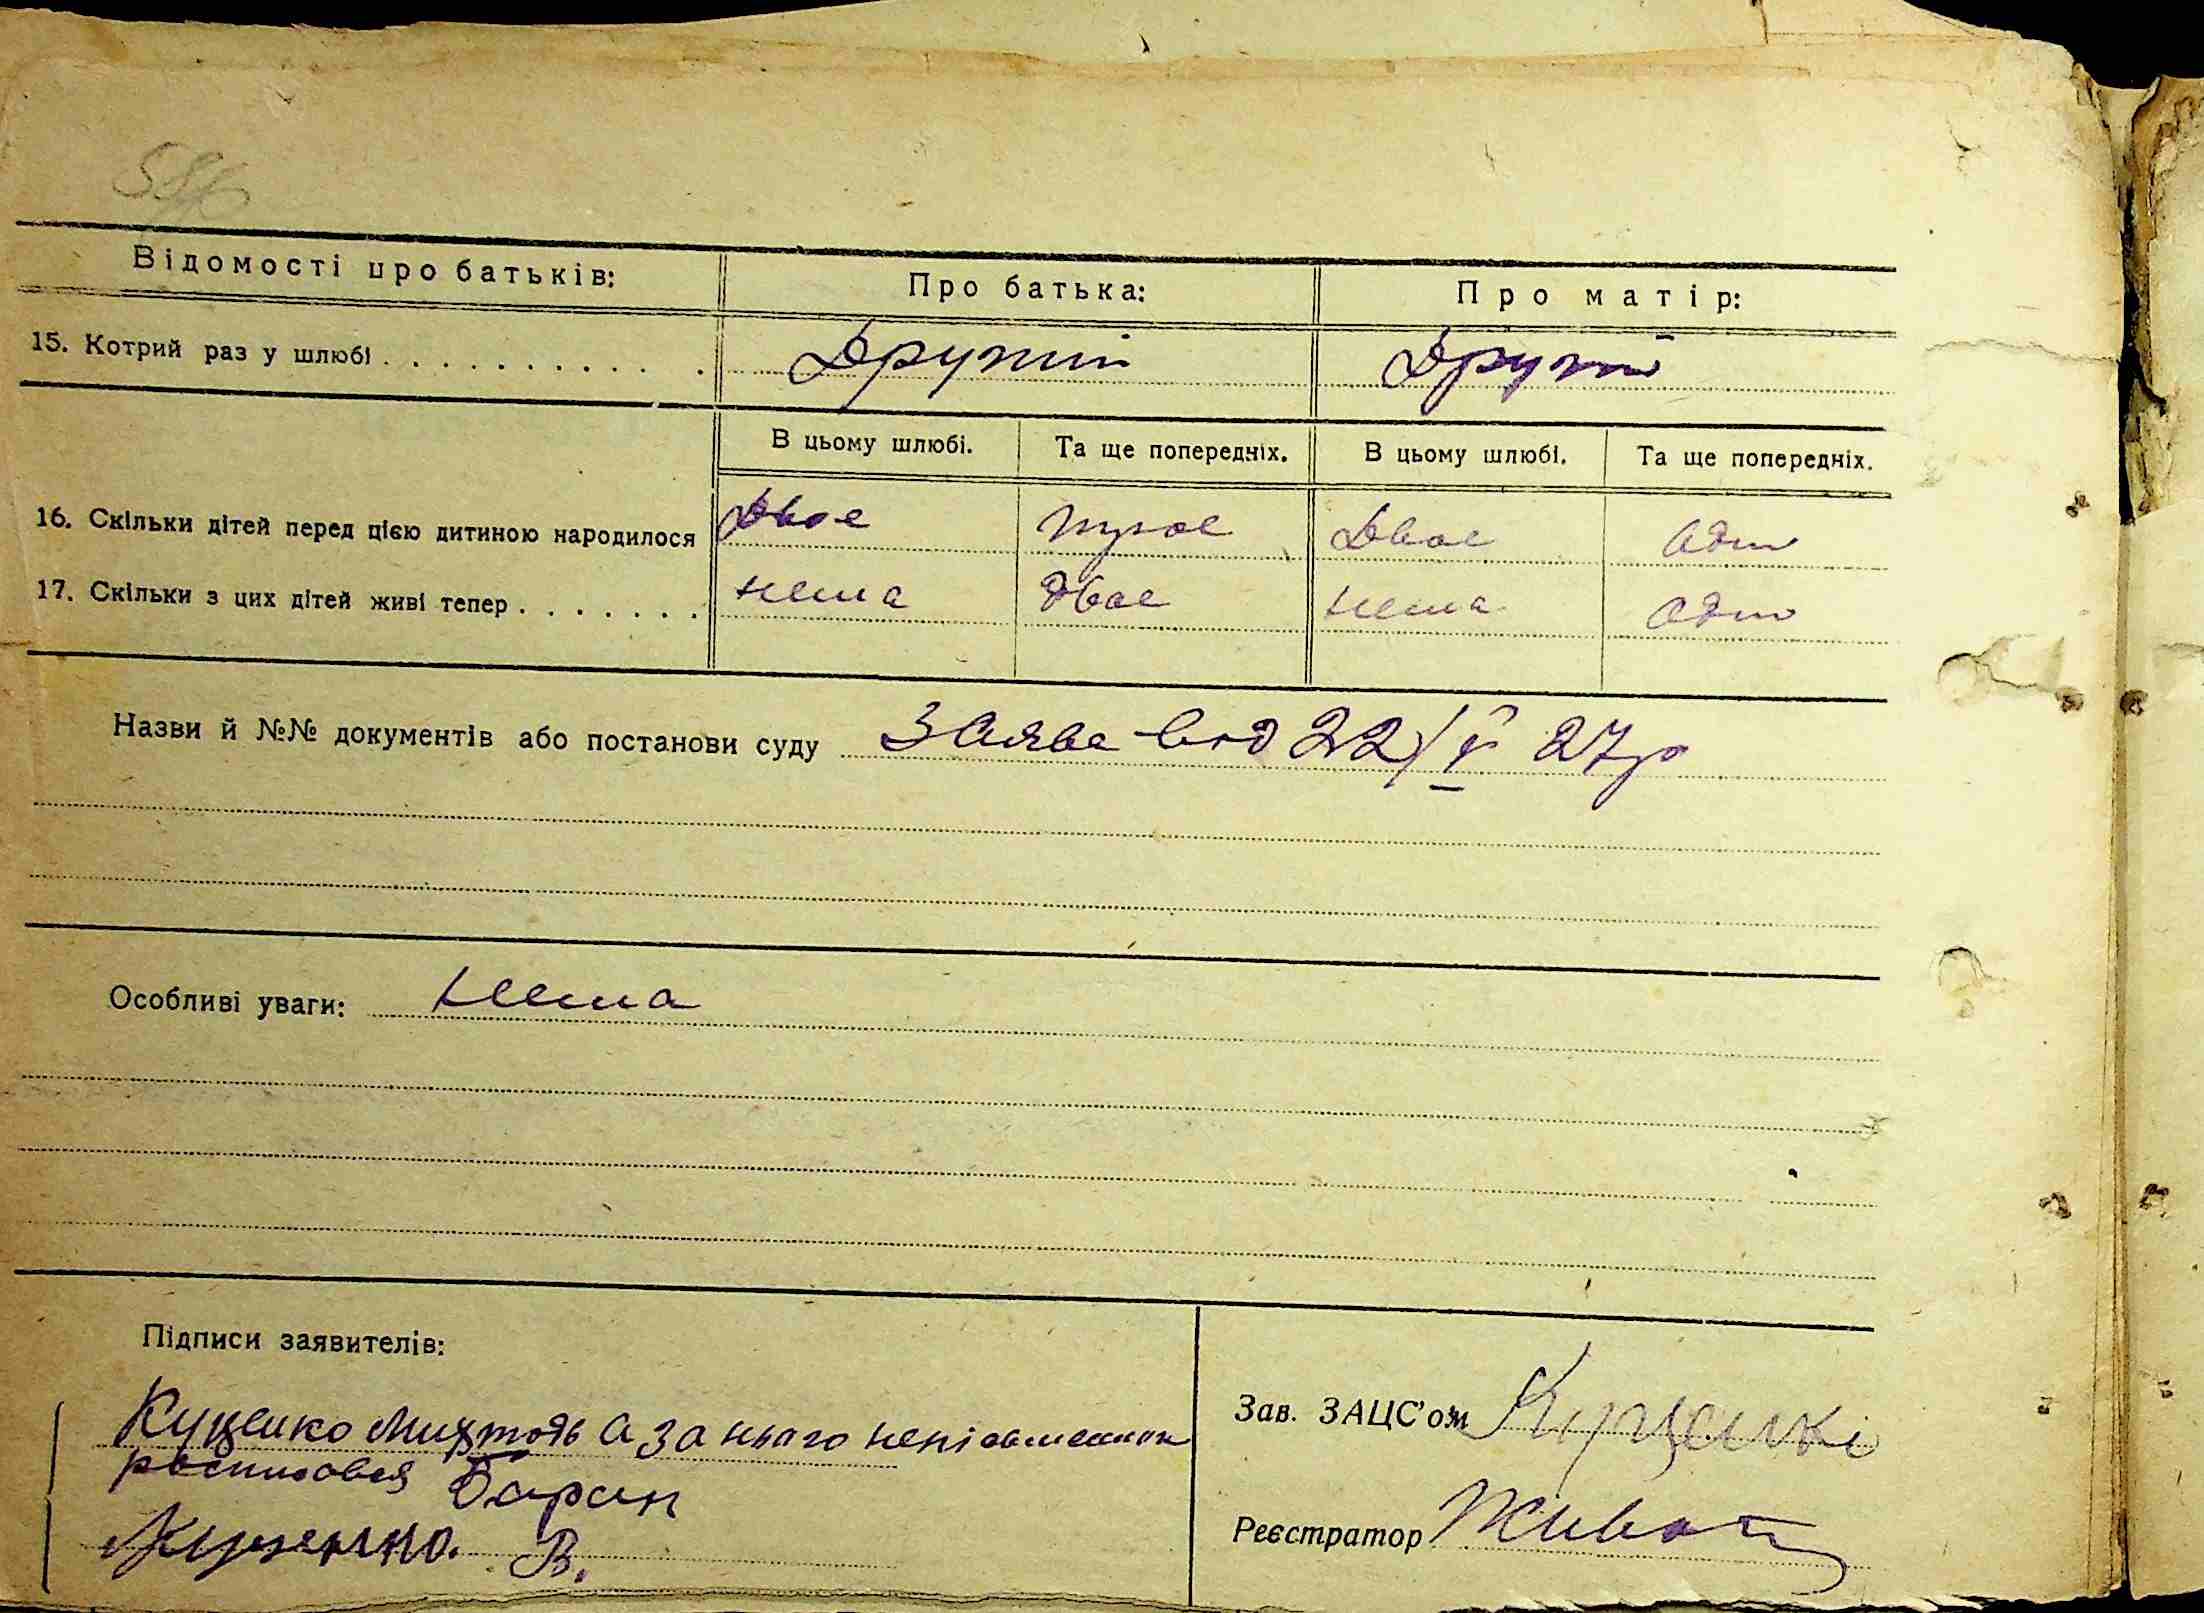 58
Відомості про батьків: Про батька: Про матір:
15. Котрий раз у шлюбі Другий Другий
В цьому шлюбі. Та ще попередніх. В цьому шлюбі. Та ще попередніх.
16. Скільки дітей перед цією дитиною народилося Двоє троє Двоє одно
17. Скільки з цих дітей живі тепер нема двоє нема одно
Назви й №№ документів або постанови суду Заява від 22/V 27р
Особливі уваги: нема
Підписи заявителів:
Куценко а за нього
росписався Баран
Куценко. В.
Зав. ЗАЦС'ом
Реєстратор